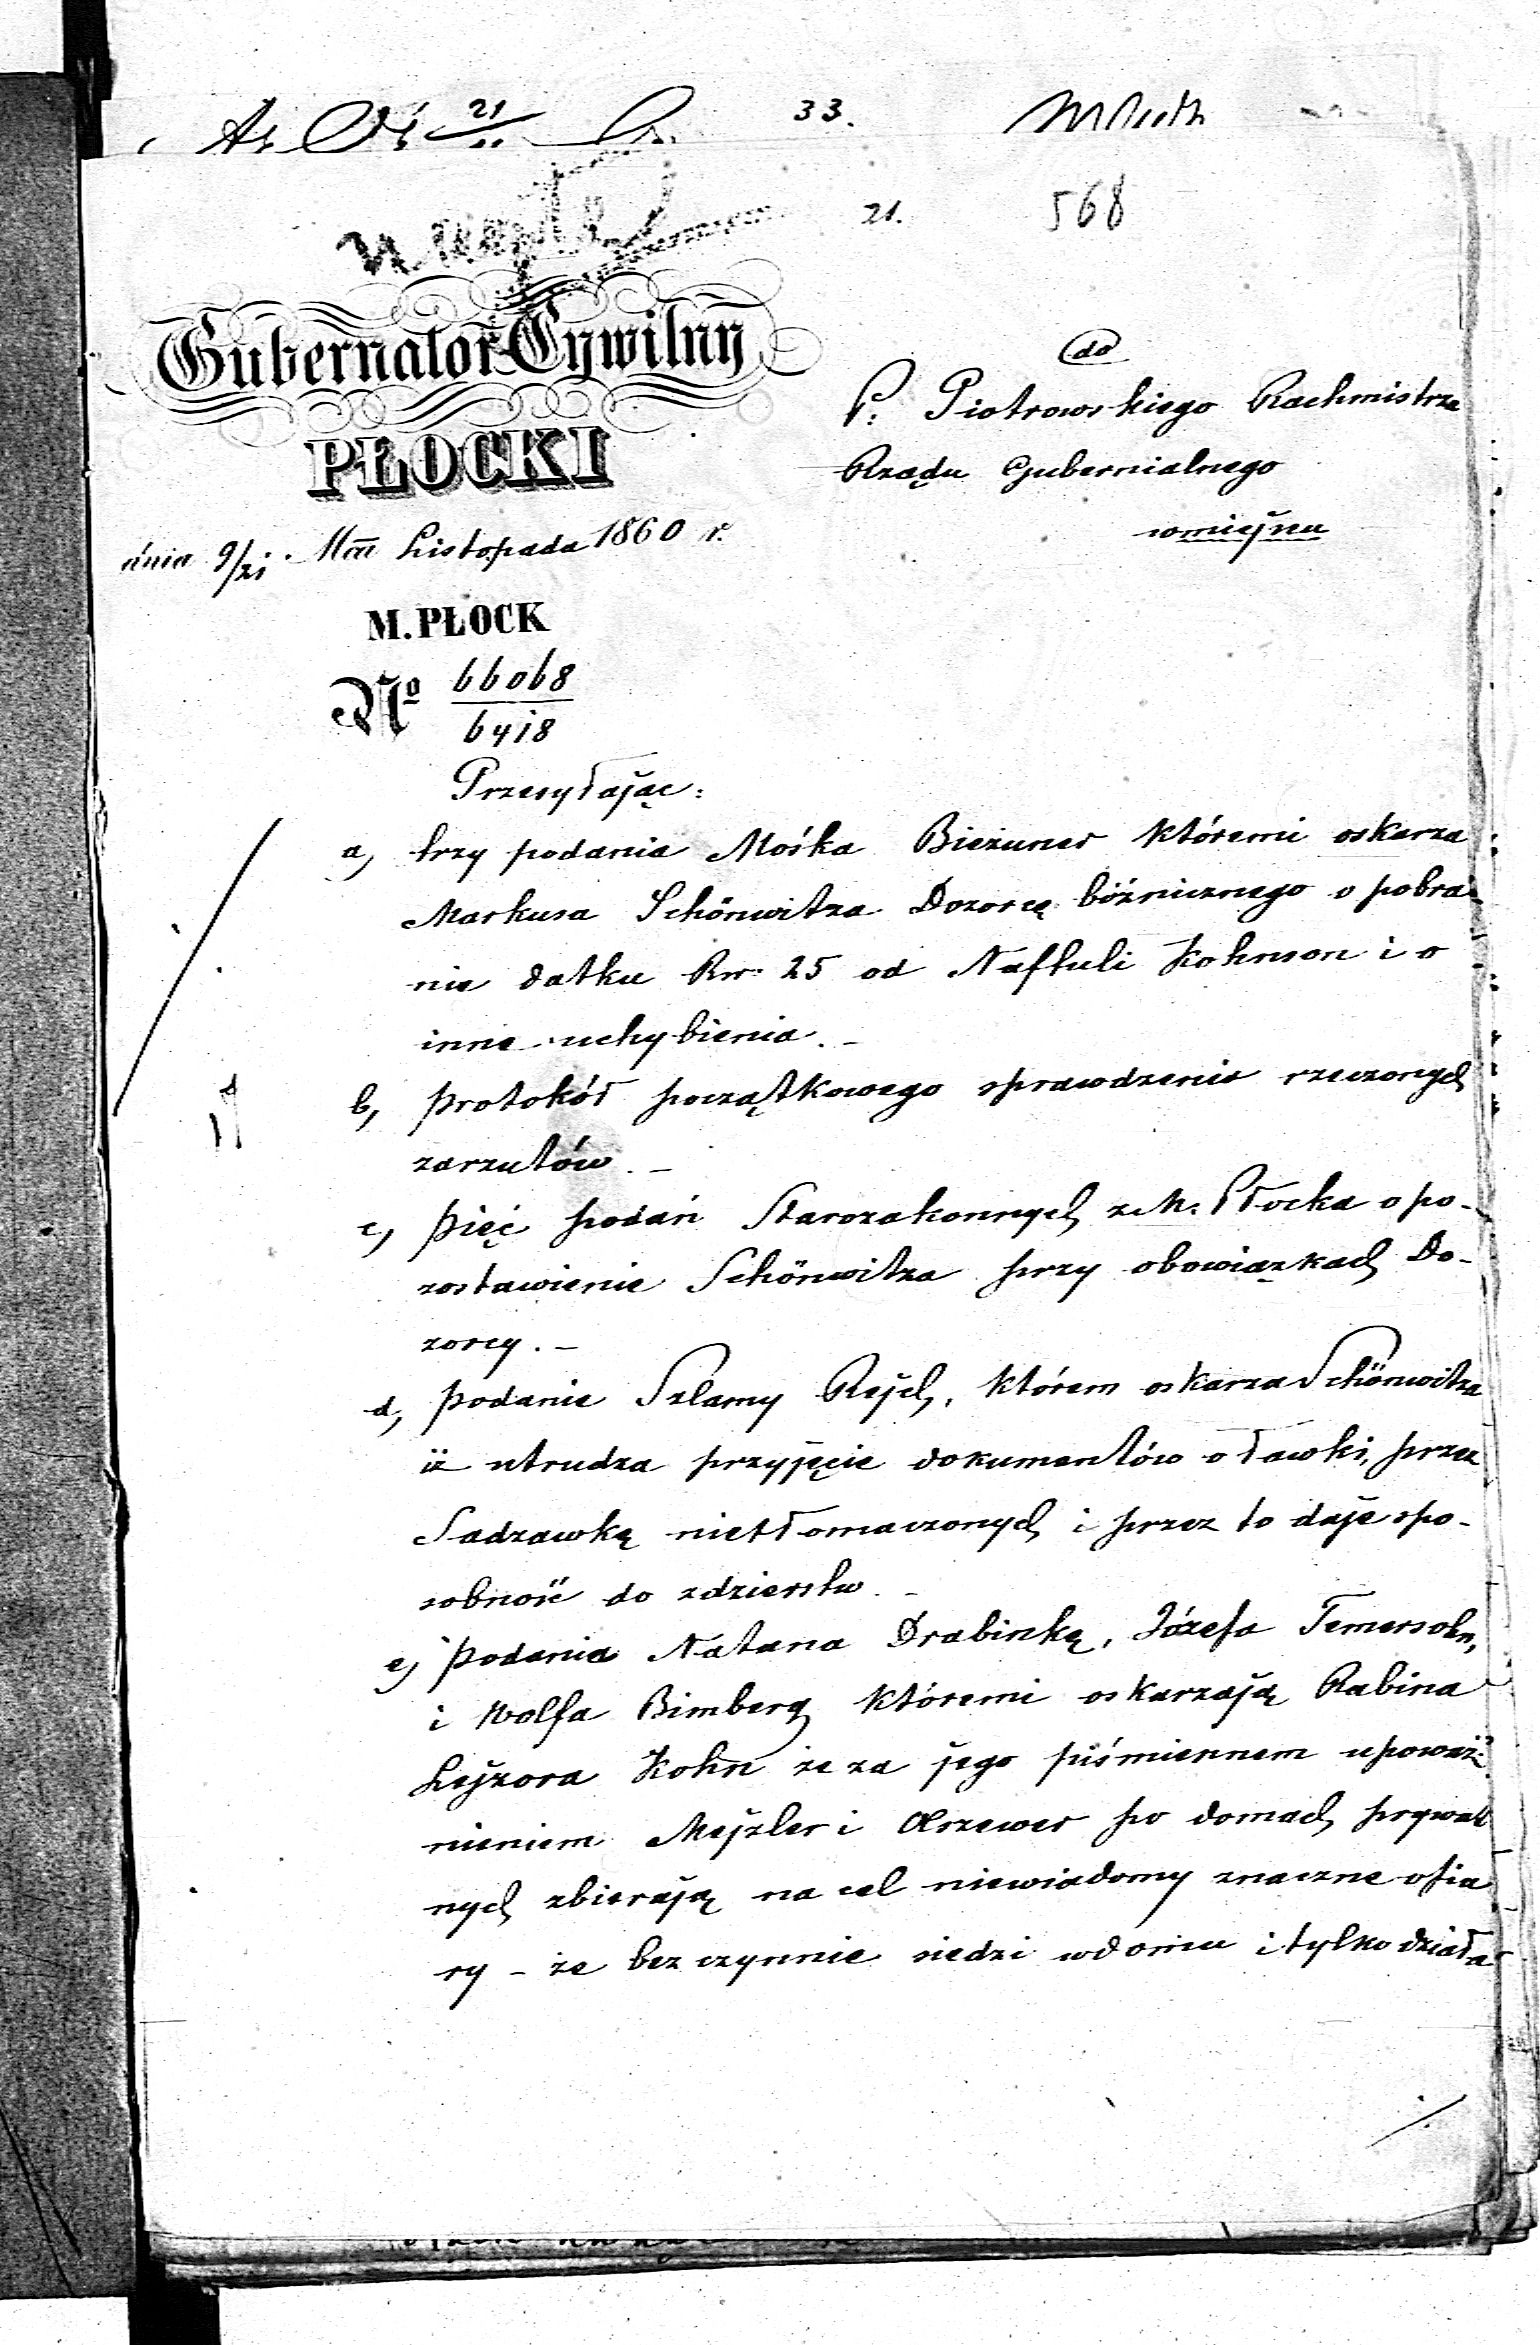 33.
21.
568
Gubernator Cywilny
PŁOCKI
dnia 9/21 Mca Listopada 1860 r.
M. PŁOCK
No 66068
6418
do
P. Piotrowskiego Rachmistrza
Rządu Gubernialnego
w miejscu
Przesyłając:
a, trzy podania Mośka Bieżuner któremi oskarza
Markusa Schönwitza Dozorcę bóżnicznego o pobra-
nie datku Rsr. 25 od Naftuli Kohnson i o
inne uchybienia. -
b, protokół początkowego sprawdzenia rzeczonych
zarzutów. -
c, pięć podań Starozakonnych z M. Płocka o po-
zostawienie Schönwitza przy obowiązkach Do-
zorcy. -
d, podanie Szlamy Rejch, którem oskarza Schönwitza
iż utrudza przyjęcie dokumentów o ławki, przez
Sadzawkę nietłomaczonych i przez to daje spo-
sobność do zdzierstw. -
e, podania Natana Drabinką, Józefa Temersohn,
i Wolfa Bimberg któremi oskarzają Rabina
Lejzora Kohn że za jego piśmiennem upoważ-
nieniem Mejzler i Orzewer po domach prywat
nych zbierają na cel niewiadomy znaczne ofia
ry - że bezczynnie siedzi w domu i tylko działa